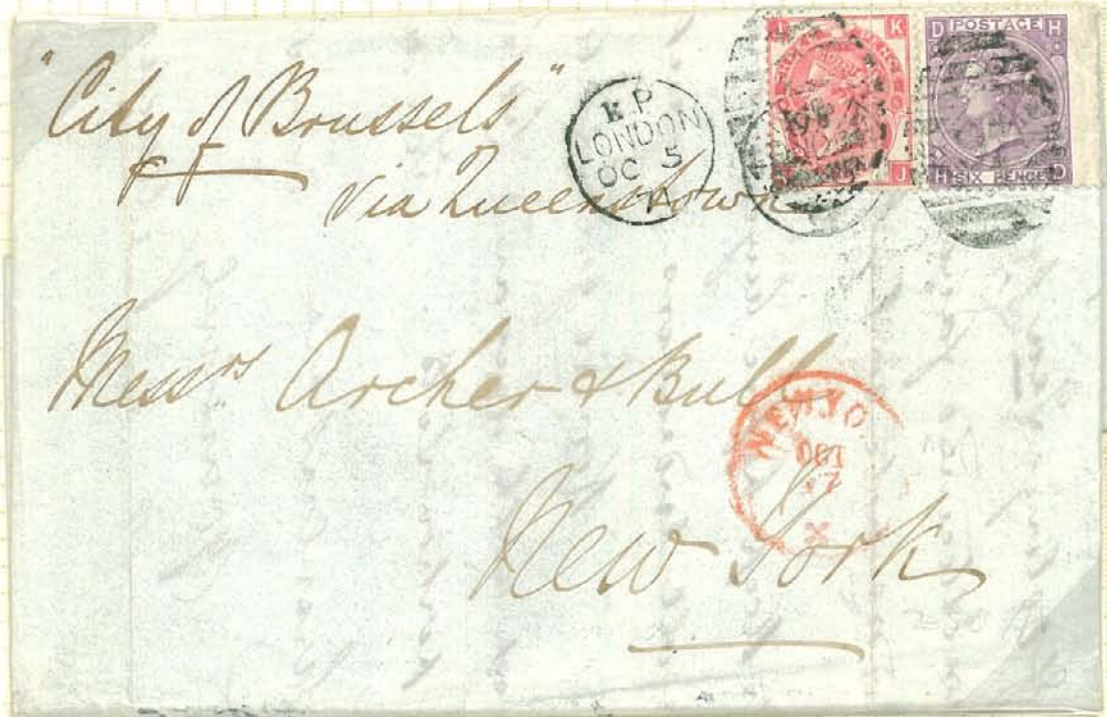 "City of Brussels"
via Queenstown
K.P.
LONDON
OC 5
J K
J
D POSTAGE H
H SIX PENCE D
Messrs Archer & Bull
NEW YO
OCT
17
New York